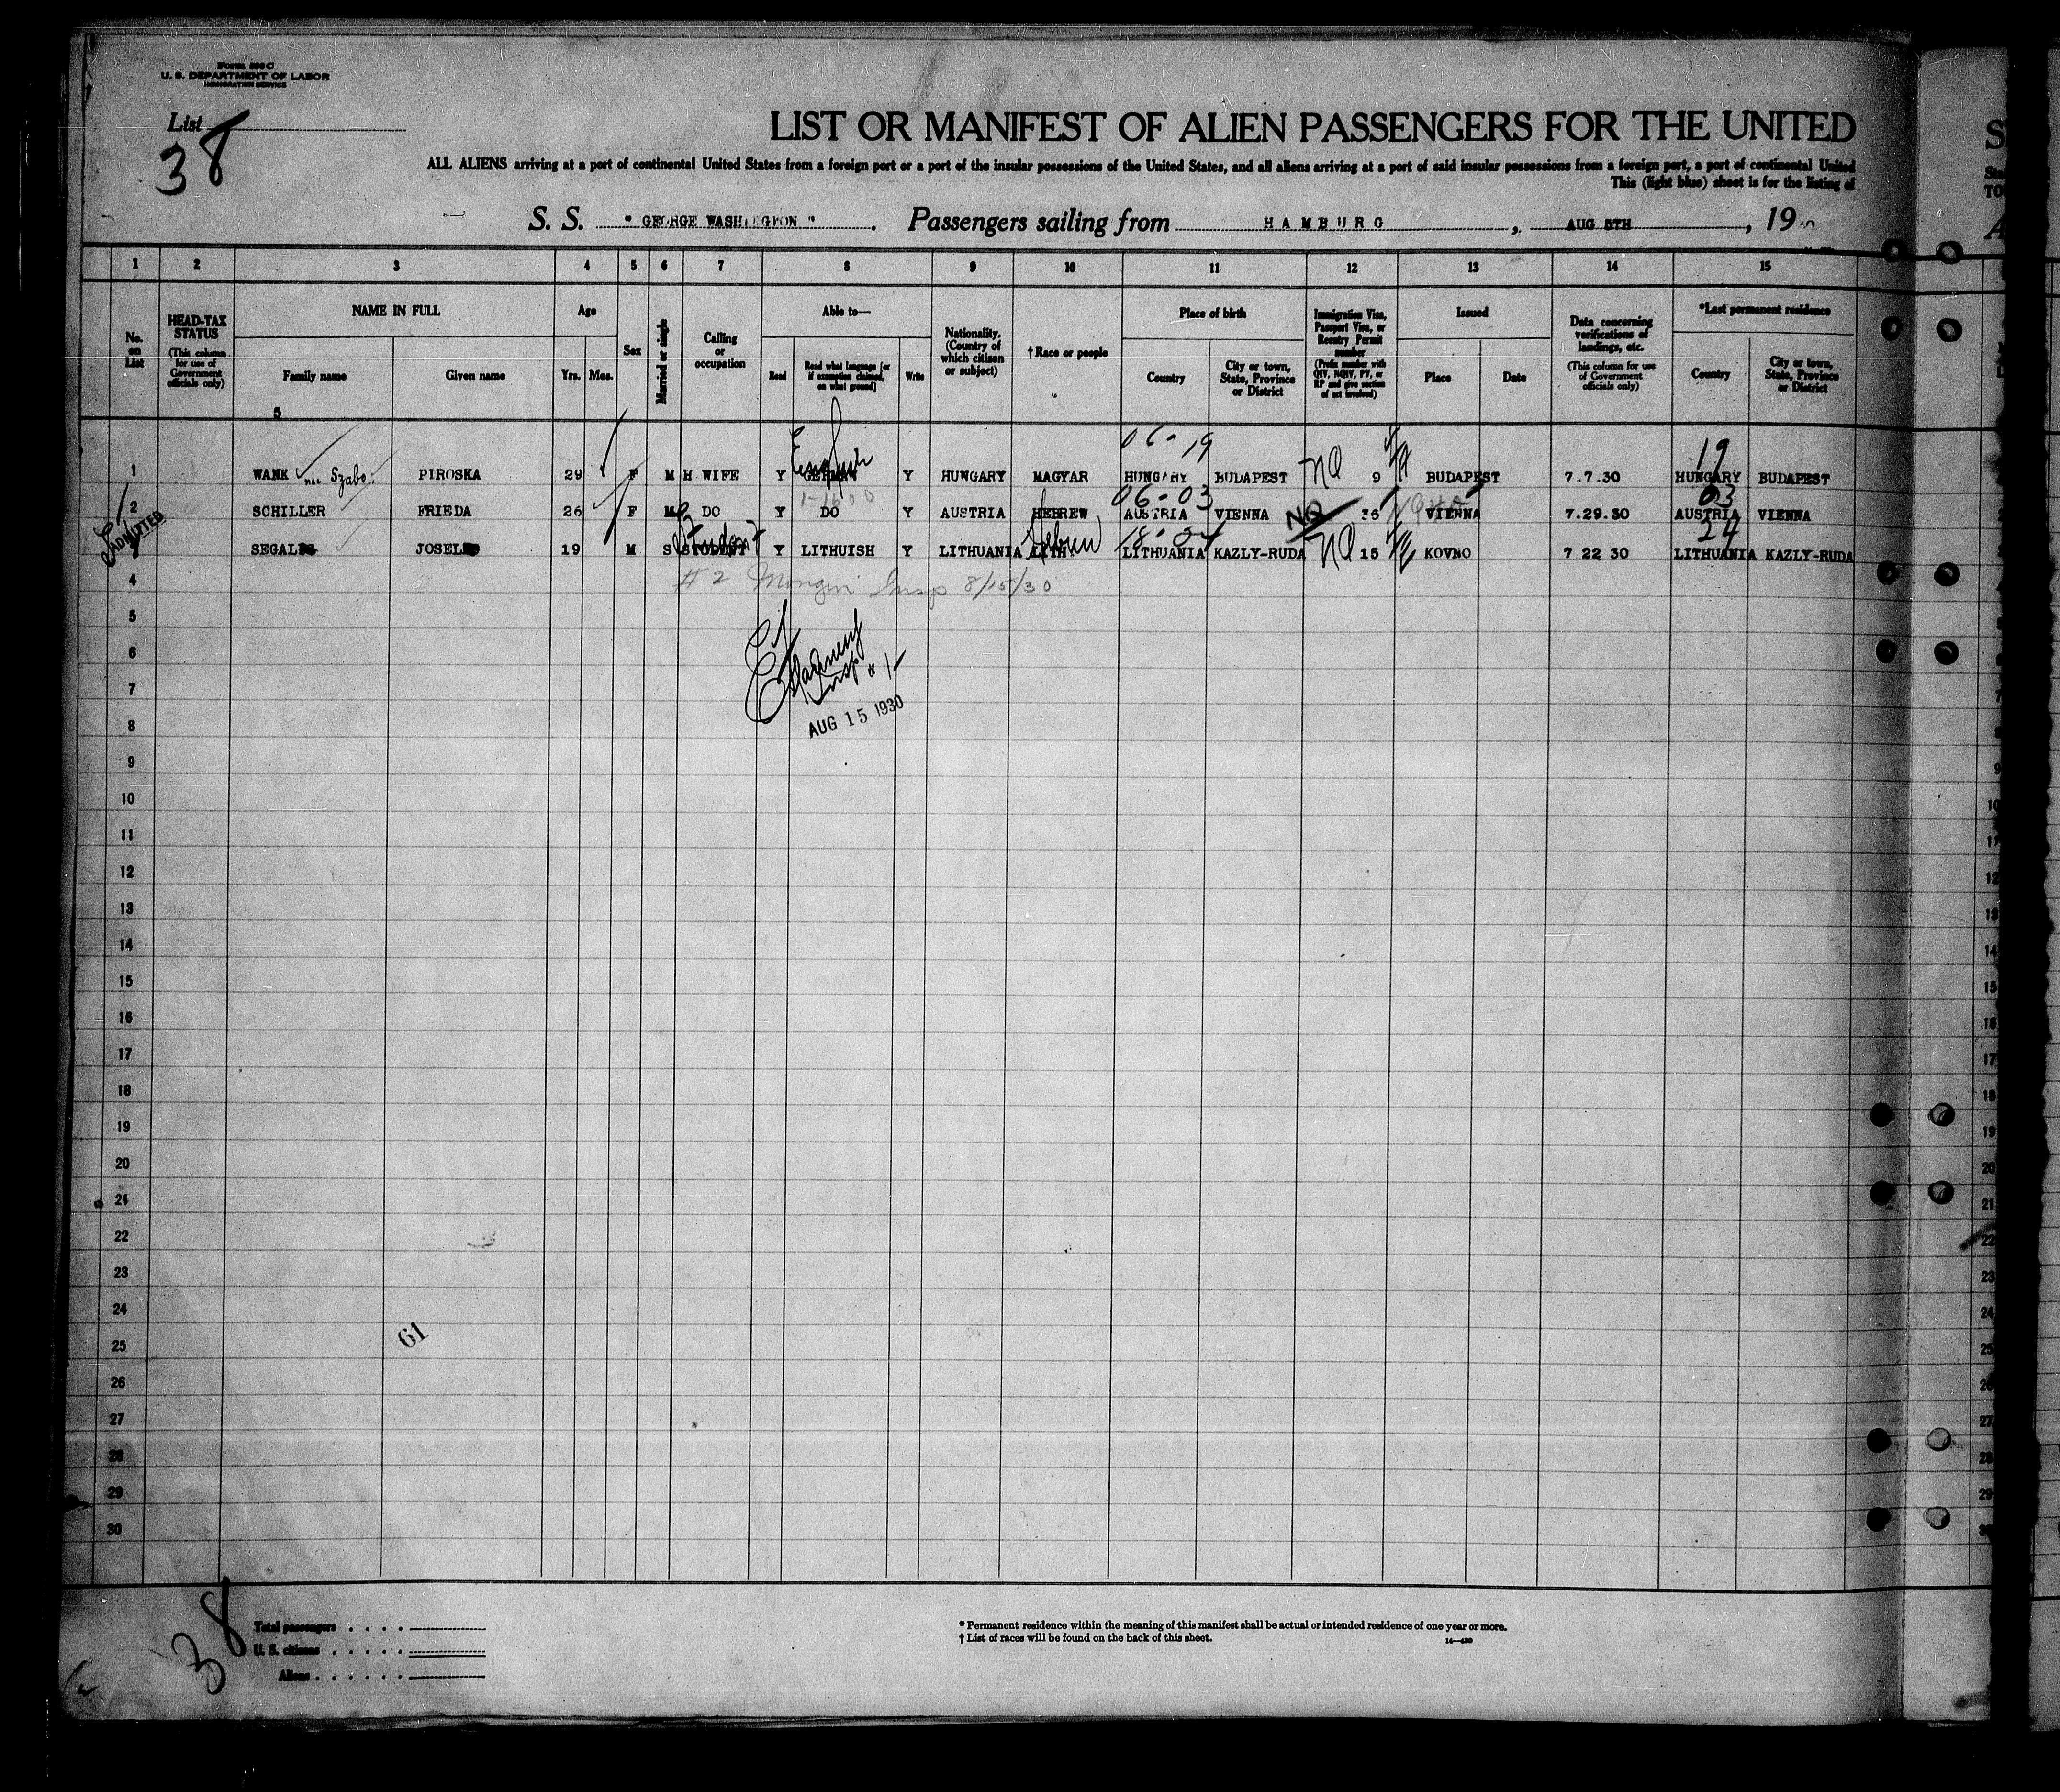 Form 500 C
U. S. DEPARTMENT OF LABOR
IMMIGRATION SERVICE
List
38
LIST OR MANIFEST OF ALIEN PASSENGERS FOR THE UNITED
ALL ALIENS arriving at a port of continental United States from a foreign port or a port of the insular possessions of the United States, and all aliens arriving at a port of said insular possessions from a foreign port, a port of continental United
This (light blue) sheet is for the listing of
S. S. " GEORGE WASHINGTON ". Passengers sailing from HAMBURG, AUG 5TH, 19
1 2 3 4 5 6 7 8 9 10 11 12 13 14 15
No. on List
HEAD-TAX STATUS (This column for use of Government officials only)
NAME IN FULL
Family name Given name
5
Age
Yrs. Mos.
Sex
Married or single
Calling or occupation
Able to—
Read Read what language [or if exemption claimed, on what ground] Write
Nationality. (Country of which citizen or subject)
† Race or people
Place of birth
Country City or town, State, Province or District
Immigration Visa, Passport Visa, or Reentry Permit number (Prefix number with QIV, NQIV, PV, or RP and give section of act involved)
Issued
Place Date
Data concerning verifications of landings, etc. (This column for use of Government officials only)
*Last permanent residence
Country City or town, State, Province or District
English 06-19 19
1 WANK née Szabo. PIROSKA 29 F M H WIFE Y GERMAN Y HUNGARY MAGYAR HUNGARY BUDAPEST NQ 9 BUDAPEST 7.7.30 HUNGARY BUDAPEST
06-03 03
2 SCHILLER FRIEDA 26 F M DO Y DO Y AUSTRIA HEBREW AUSTRIA VIENNA NQ 36 VIENNA 7.29.30 AUSTRIA VIENNA
ADMITTED Student Hebrew 24
SEGAL JOSEL 19 M S STUDENT Y LITHUISH Y LITHUANIA LITH LITHUANIA KAZLY-RUDA NQ 15 KOVNO 7 22 30 LITHUANIA KAZLY-RUDA
4 #2 Insp 8/15/30
5
6
Insp
7
AUG 15 1930
8
9
10
11
12
13
14
15
16
17
18
19
20
21
22
23
24
61
25
26
27
28
29
30
38
Total passengers
U. S. citizens
Aliens
* Permanent residence within the meaning of this manifest shall be actual or intended residence of one year or more.
† List of races will be found on the back of this sheet.
14—430